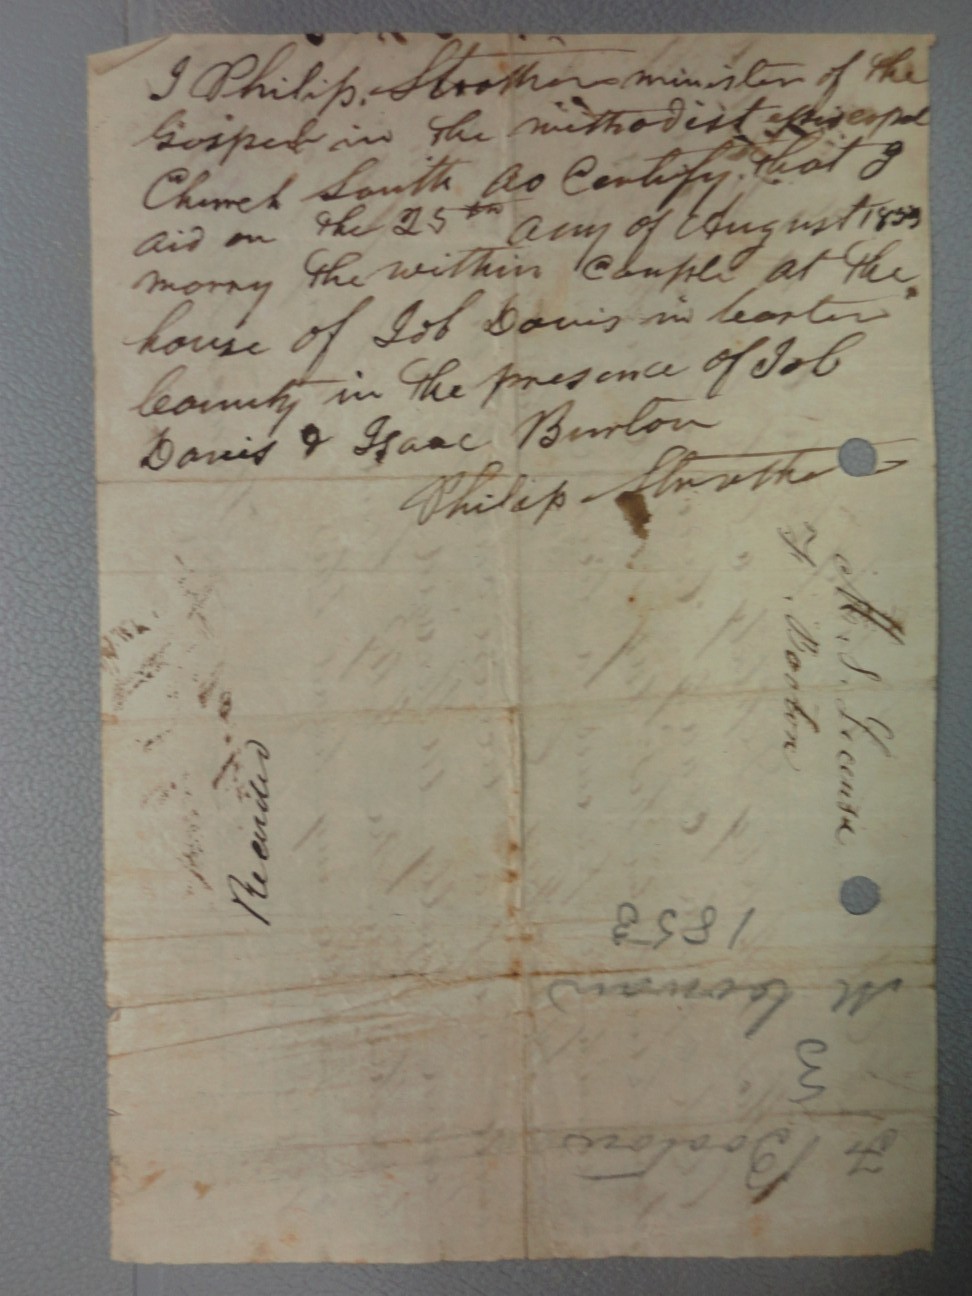 I Philip Strother minister of the
Gospel in the methodist episcopal
Church South do Certify that I
did on the 25th day of August 1853
marry the within Couple at the
house of Job Davis in Carter
County in the presence of Job
Davis & Isaac Burton
Philip Strother
M. S. License
F. Boston
Recorded
1853
M Cowan
W
F Boston